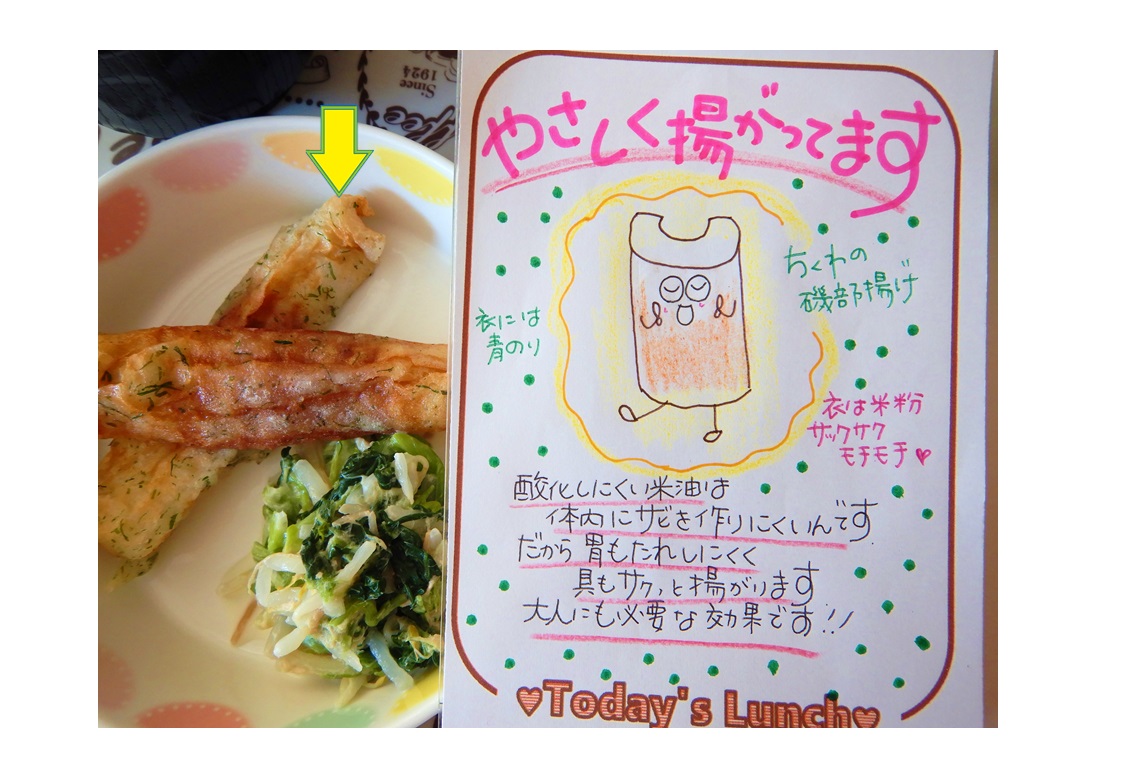 Since
1924
やさしく揚がってます
ちくわの
磯部揚げ
衣には
青のり
衣は米粉
ザックサク
モチモチ♥
酸化しにくい米油は
体内にサビを作りにくいんです
だから胃もたれしにくく
具もサクッと揚がります
大人にも必要な効果です!!
♥Today's Lunch♥